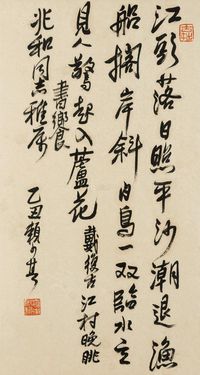 江头落日照平沙潮退渔
船搁岸斜白鸟一双临水立
見人驚起入蘆花 戴復古江村晚眺
書饗
兆和同志雅屬
乙丑賴少其